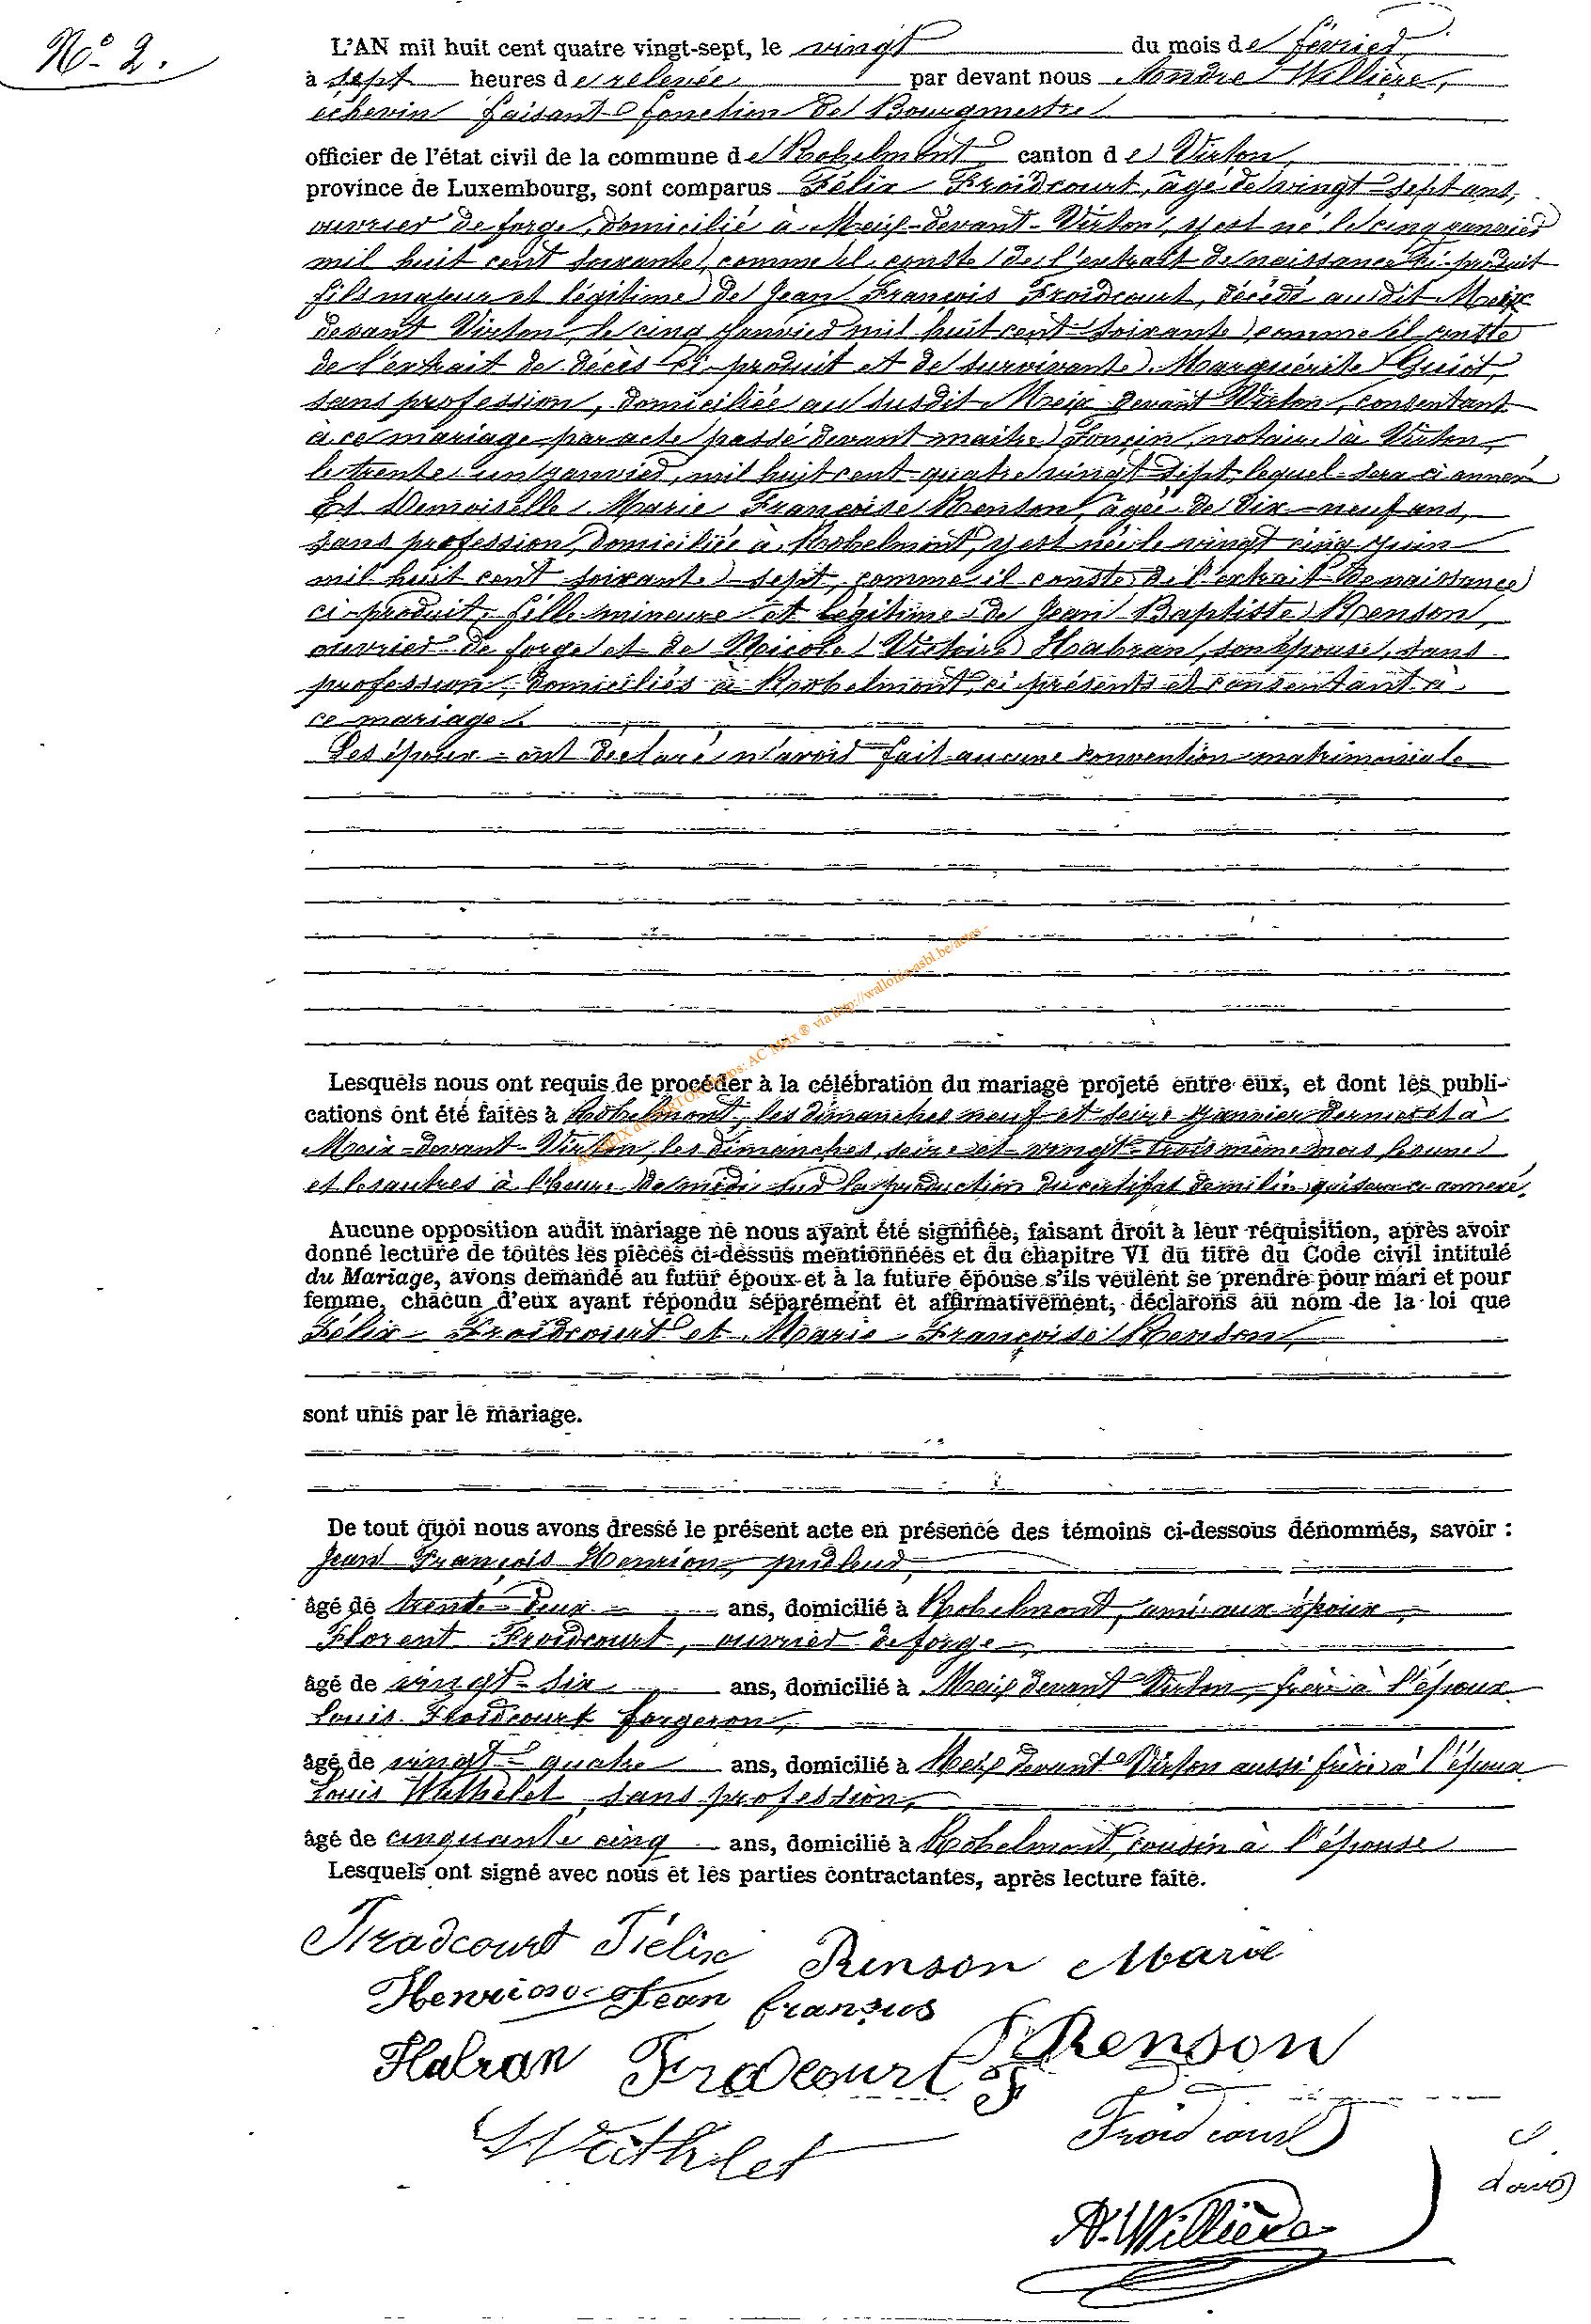 N° 2.
L'AN mil huit cent quatre vingt-sept, le vingt du mois de février
à sept heures de relevée par devant nous André Willière,
échevin faisant fonction de Bourgmestre
officier de l'état civil de la commune de Robelmont, canton de Virton,
province de Luxembourg, sont comparus Félix Froidcourt, âgé de vingt-sept ans,
ouvrier de forge, domicilié à Meix-devant-Virton, y est né le cinq janvier
mil huit cent soixante, comme il conste de l'extrait de naissance ci-produit
fils majeur et légitime de Jean François Froidcourt, décédé au dit Meix
devant Virton, le cinq janvier mil huit cent soixante, comme il conste
de l'extrait de décès ci-produit et de survivante Marguérite Guiot,
sans profession, domiciliée au susdit Meix devant Virton, consentant
à ce mariage par acte passé devant maître notaire à Virton,
le trente un janvier, mil huit cent quatre vingt sept, lequel sera ci annexé
Et Demoiselle Marie Françoise Renson, âgée de dix-neuf ans,
sans profession, domiciliée à Robelmont, y est née le vingt cinq juin
mil huit cent soixante-sept, comme il conste de l'extrait de naissance
ci-produit, fille mineure et légitime de Jean Baptiste Renson,
ouvrier de forge et de Nicole Victoire Habran, son épouse, sans
profession, domiciliés à Robelmont, ci présents et consentant à
ce mariage.
Les époux ont déclaré n'avoir fait aucune convention matrimoniale
AC Meix ® via http://wallonia-asbl.be/actes -
Lesquels nous ont requis de procéder à la célébration du mariage projeté entre eux, et dont les publi-
cations ont été faites à Robelmont, les dimanches neuf et seize janvier dernier et à
Meix-devant-Virton, les dimanches, seize et vingt-trois même mois les unes
et les autres à l'heure de midi sur la production du certificat de milice qui sera ci annexé.
Aucune opposition audit mariage ne nous ayant été signifiée, faisant droit à leur réquisition, après avoir
donné lecture de toutes les pièces ci-dessus mentionnées et du chapitre VI du titre du Code civil intitulé
du Mariage, avons demandé au futur époux et à la future épouse s'ils veulent se prendre pour mari et pour
femme, chacun d'eux ayant répondu séparément et affirmativement, déclarons au nom de la loi que
Félix Froidcourt et Marie Françoise Renson,
sont unis par le mariage.
De tout quoi nous avons dressé le présent acte en présence des témoins ci-dessous dénommés, savoir :
Jean François Henrion,
âgé de trente-deux ans, domicilié à Robelmont, ami aux époux,
Florent Froidcourt, ouvrier de forge,
âgé de vingt-six ans, domicilié à Meix devant Virton, frère à l'époux
Louis Froidcourt forgeron,
âgé de vingt-quatre ans, domicilié à Meix devant Virton aussi frère à l'époux
Louis Wathelet, sans profession,
âgé de cinquante cinq ans, domicilié à Robelmont, cousin à l'épouse
Lesquels ont signé avec nous et les parties contractantes, après lecture faite.
Fradcourt Félix Renson Marie
Henrion Jean françois
Habran Fradcourt F Renson
Wathelet Froidcourt
A. Willière